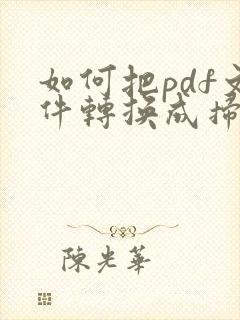 如何把pdf文
件轉換成掃
陳光華